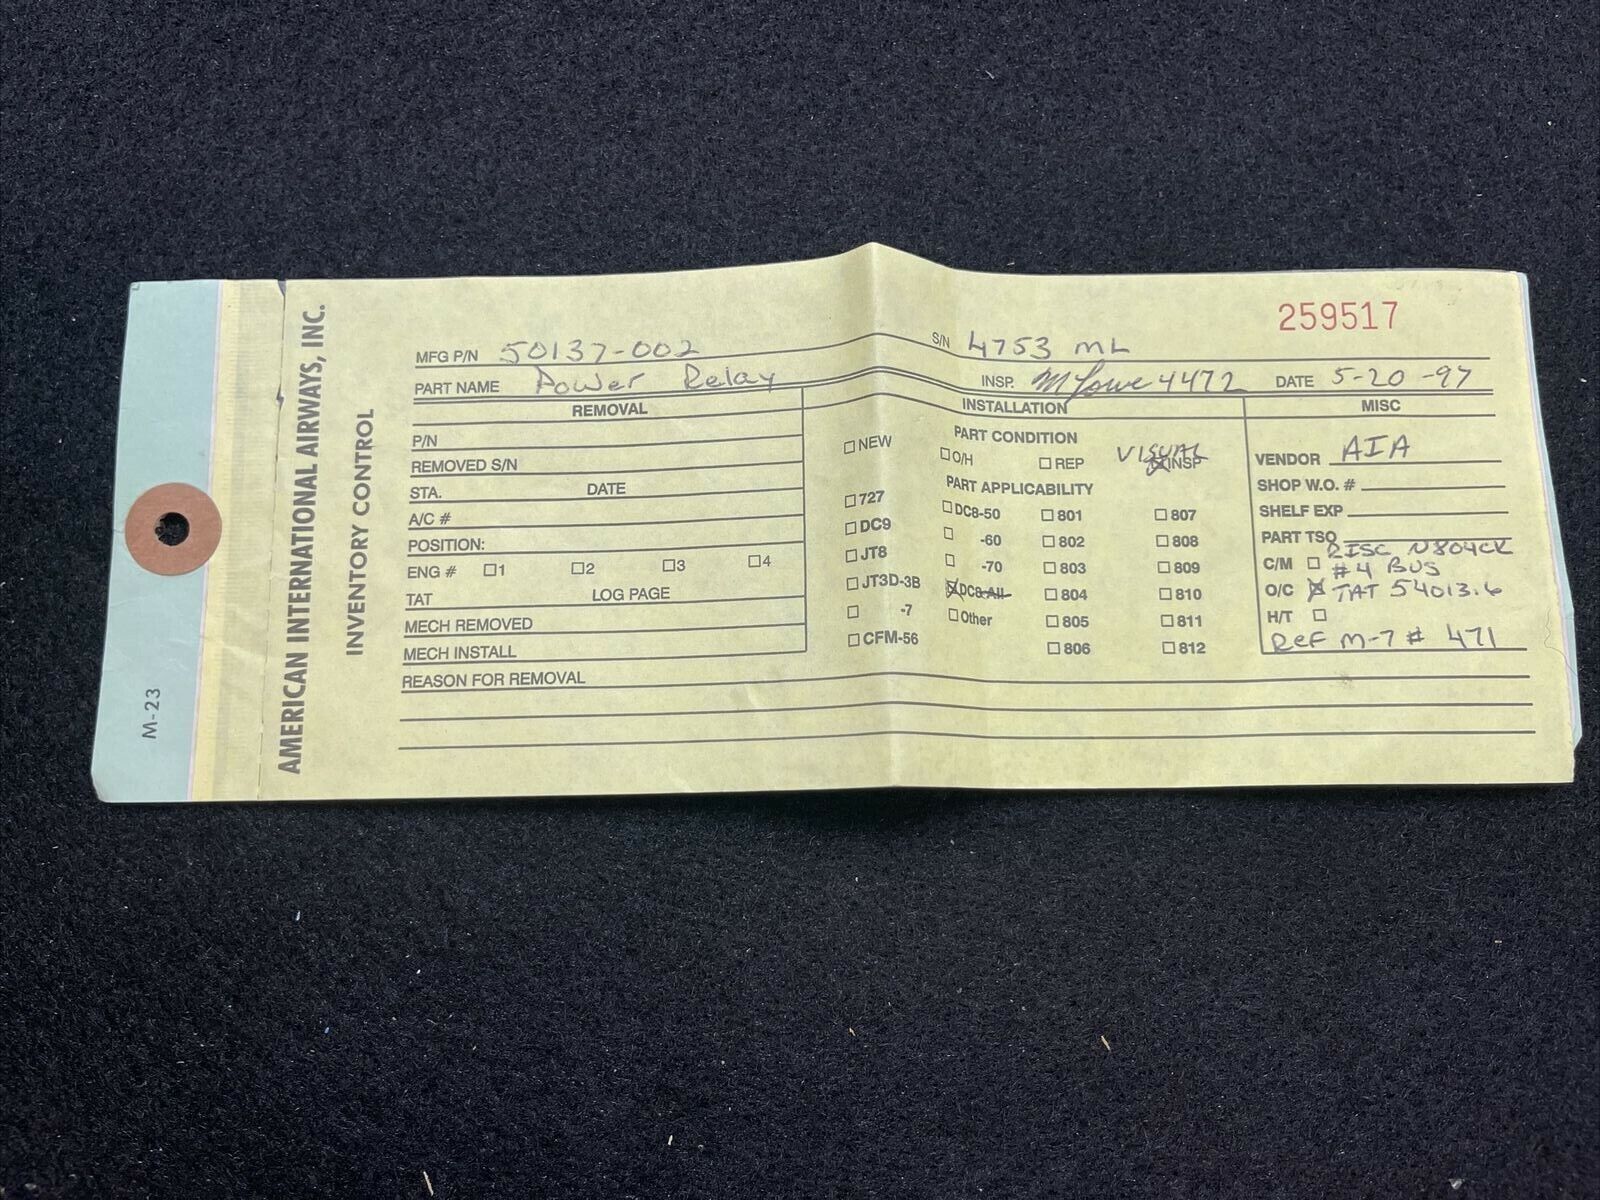 259517
MFG P/N 50137-002 S/N 4753 ML
PART NAME Power Relay INSP. M Lowe 4472 DATE 5-20-97
REMOVAL
P/N
REMOVED S/N
STA. DATE
A/C #
POSITION:
ENG # 1 2 3 4
TAT LOG PAGE
MECH REMOVED
MECH INSTALL
REASON FOR REMOVAL
INSTALLATION
NEW
PART CONDITION
O/H REP VISUAL INSP
PART APPLICABILITY
727 DC8-50 801 807
DC9 -60 802 808
JT8 -70 803 809
JT3D-3B DC8-All 804 810
-7 Other 805 811
CFM-56 806 812
MISC
VENDOR AIA
SHOP W.O. #
SHELF EXP
PART TSO
C/M RISC N804CK
#4 BUS
O/C TAT 54013.6
H/T
REF M-7 # 471
AMERICAN INTERNATIONAL AIRWAYS, INC.
INVENTORY CONTROL
M-23